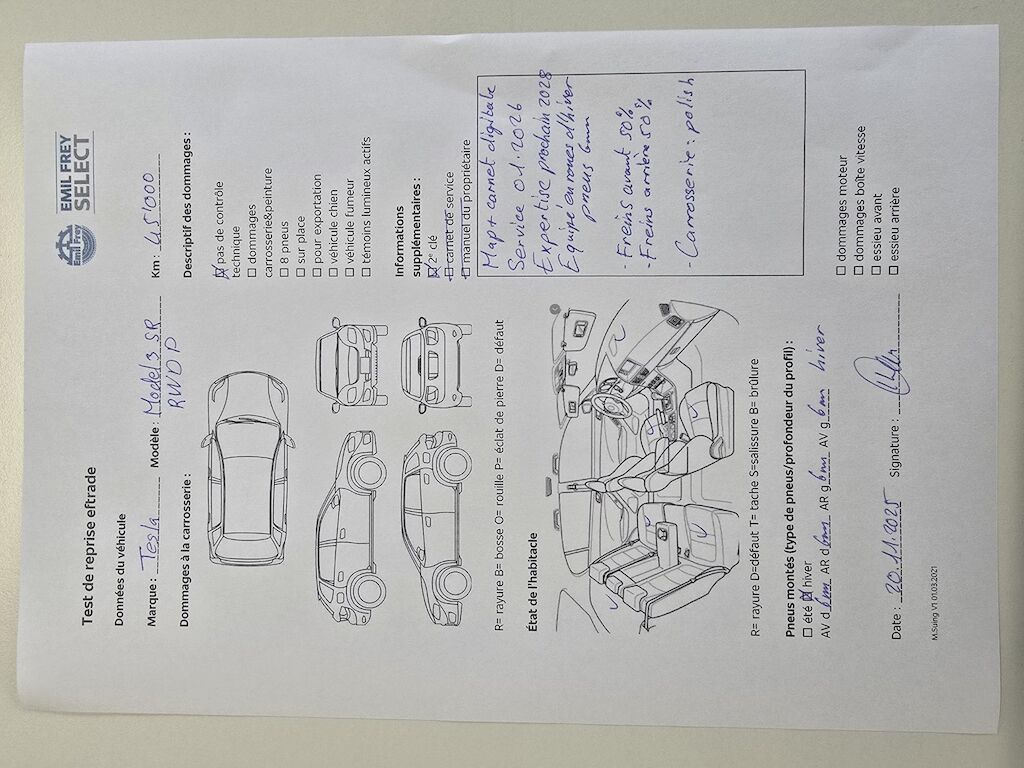 EMIL FREY
SELECT
Emil Frey
Test de reprise eftrade
Données du véhicule
Marque : Tesla Modèle : Model 3 SR Km : 45'000
RWD P
Dommages à la carrosserie :
Descriptif des dommages :
pas de contrôle
technique
dommages
carrosserie&peinture
8 pneus
sur place
pour exportation
véhicule chien
véhicule fumeur
témoins lumineux actifs
Informations
supplémentaires :
2° clé
carnet de service
manuel du propriétaire
R= rayure B= bosse O= rouille P= éclat de pierre D= défaut
État de l'habitacle
Map + carnet digitale
Service 01.2026
Expertise prochain 2028
Equipé en roues d'hiver
pneus 6mm
- Freins avant 50%
- Freins arrière 50%
- Carrosserie: polish
R= rayure D=défaut T= tache S=salissure B= brûlure
Pneus montés (type de pneus/profondeur du profil) :
été hiver
AV d 6mm AR d 6mm AR g 6mm AV g 6mm hiver
dommages moteur
dommages boîte vitesse
essieu avant
essieu arrière
Date : 20.11.2025 Signature :
M.Suing V1 01.03.2021